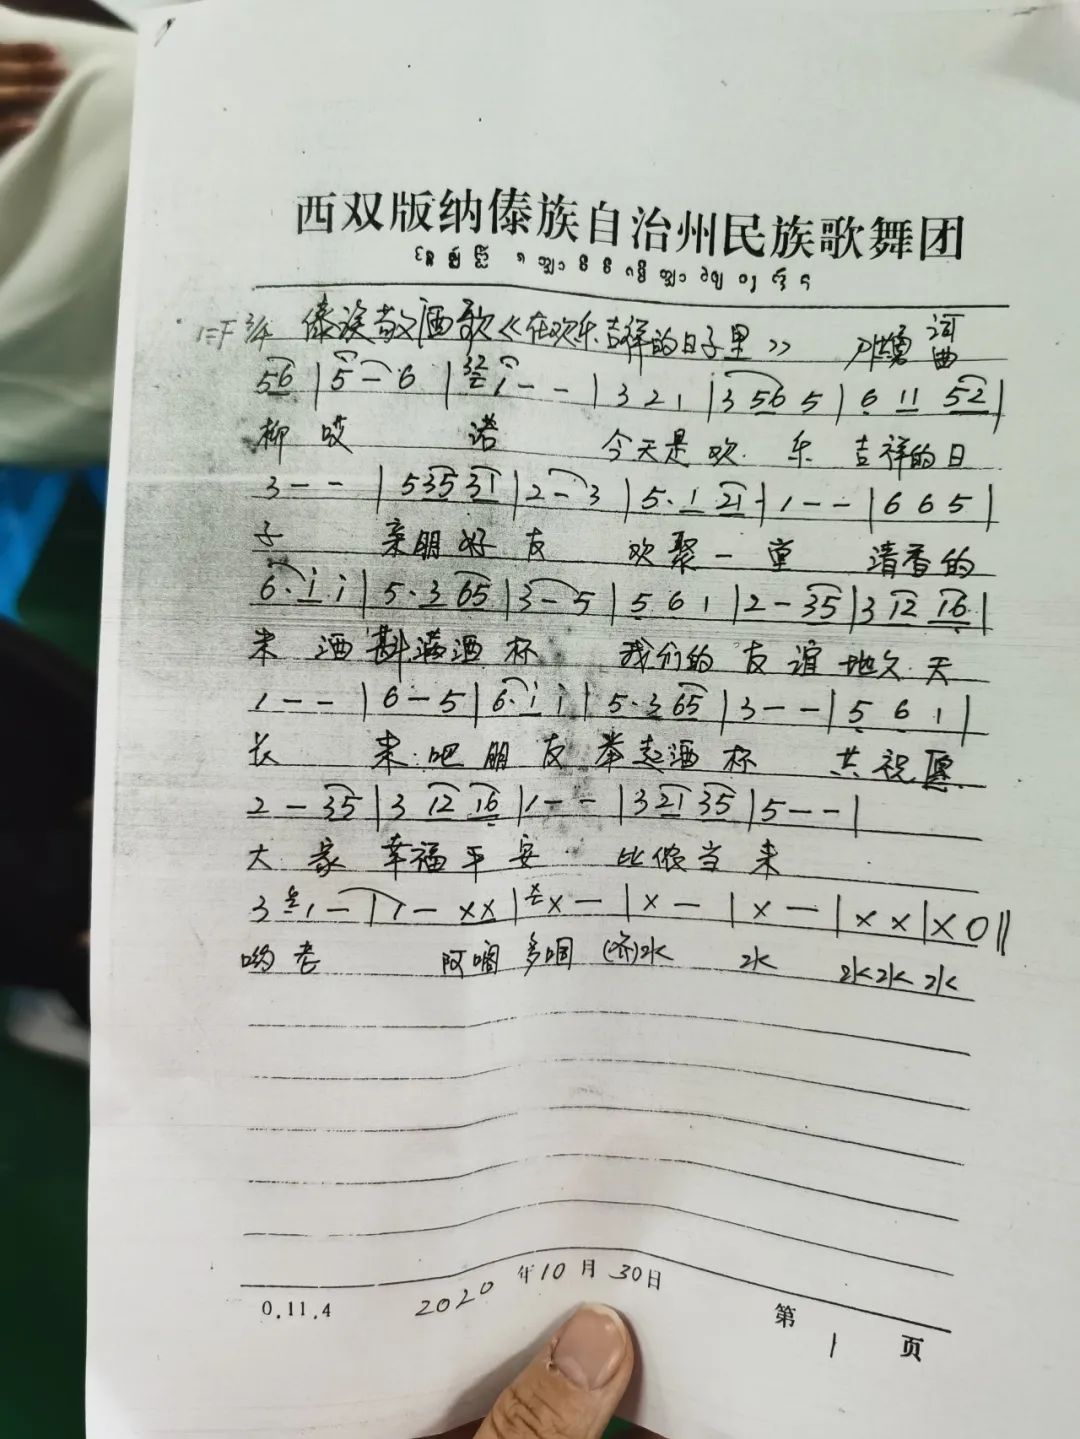 西双版纳傣族自治州民族歌舞团
1=F 3/4 傣族敬酒歌《在欢乐吉祥的日子里》 词曲
56 | 5 — 6 | 32 1 - - | 3 2 1 | 3 56 5 | 6 11 52 |
柳哎 诺 今天是欢 乐 吉祥的日
3 - - | 535 31 | 2 - 3 | 5· 1 21 | 1 - - | 6 6 5 |
子 亲朋好友 欢聚一堂 清香的
6· i i | 5· 3 65 | 3 - 5 | 5 6 1 | 2 - 35 | 3 12 16 |
米酒斟满酒杯 我们的友谊地久天
1 - - | 6 - 5 | 6· i i | 5· 3 65 | 3 - - | 5 6 1 |
长 来吧朋友举起酒杯 共祝愿
2 - 35 | 3 12 16 | 1 - - | 3 21 35 | 5 - - |
大家幸福平安 比侬当来
3 1 - | 1 - XX | X X - | X - | X - | X X | X 0 ||
哟老 阿啯多啯(齐)水 水 水水水
0.11.4 2020年10月30日 第1页